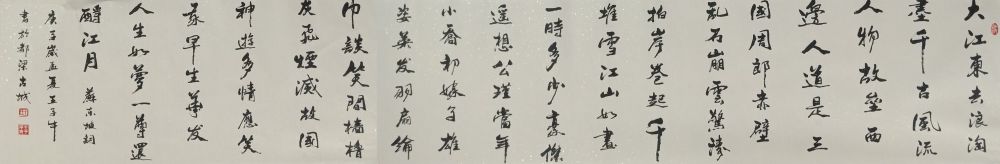 大江東去浪淘
盡千古風流
人物故壘西
邊人道是三
國周郎赤壁
乱石崩雲驚濤
拍岸卷起千
堆雪江山如畫
一時多少豪傑
遥想公瑾當年
小喬初嫁了雄
姿英发羽扇綸
巾談笑間檣櫓
灰飛煙滅故國
神遊多情應笑
我早生華发
人生如夢一尊還
酹江月 蘇东坡詞
庚子歲孟夏王子牛
書於都梁古城